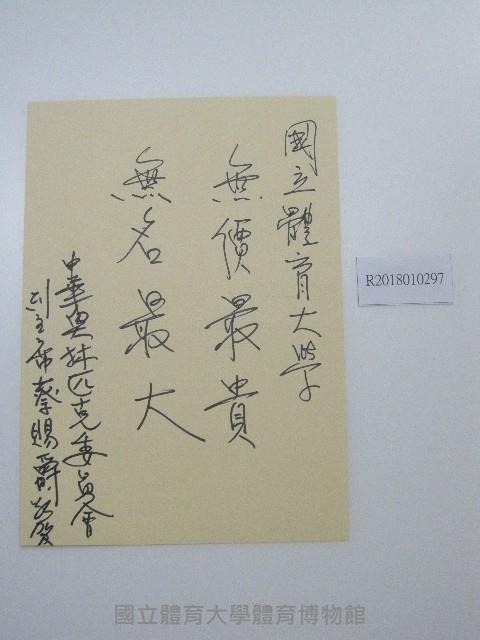 國立體育大學
無價最貴
無名最大
中華奧林匹克委員會
副主席蔡賜爵敬簽
R2018010297
國立體育大學體育博物館